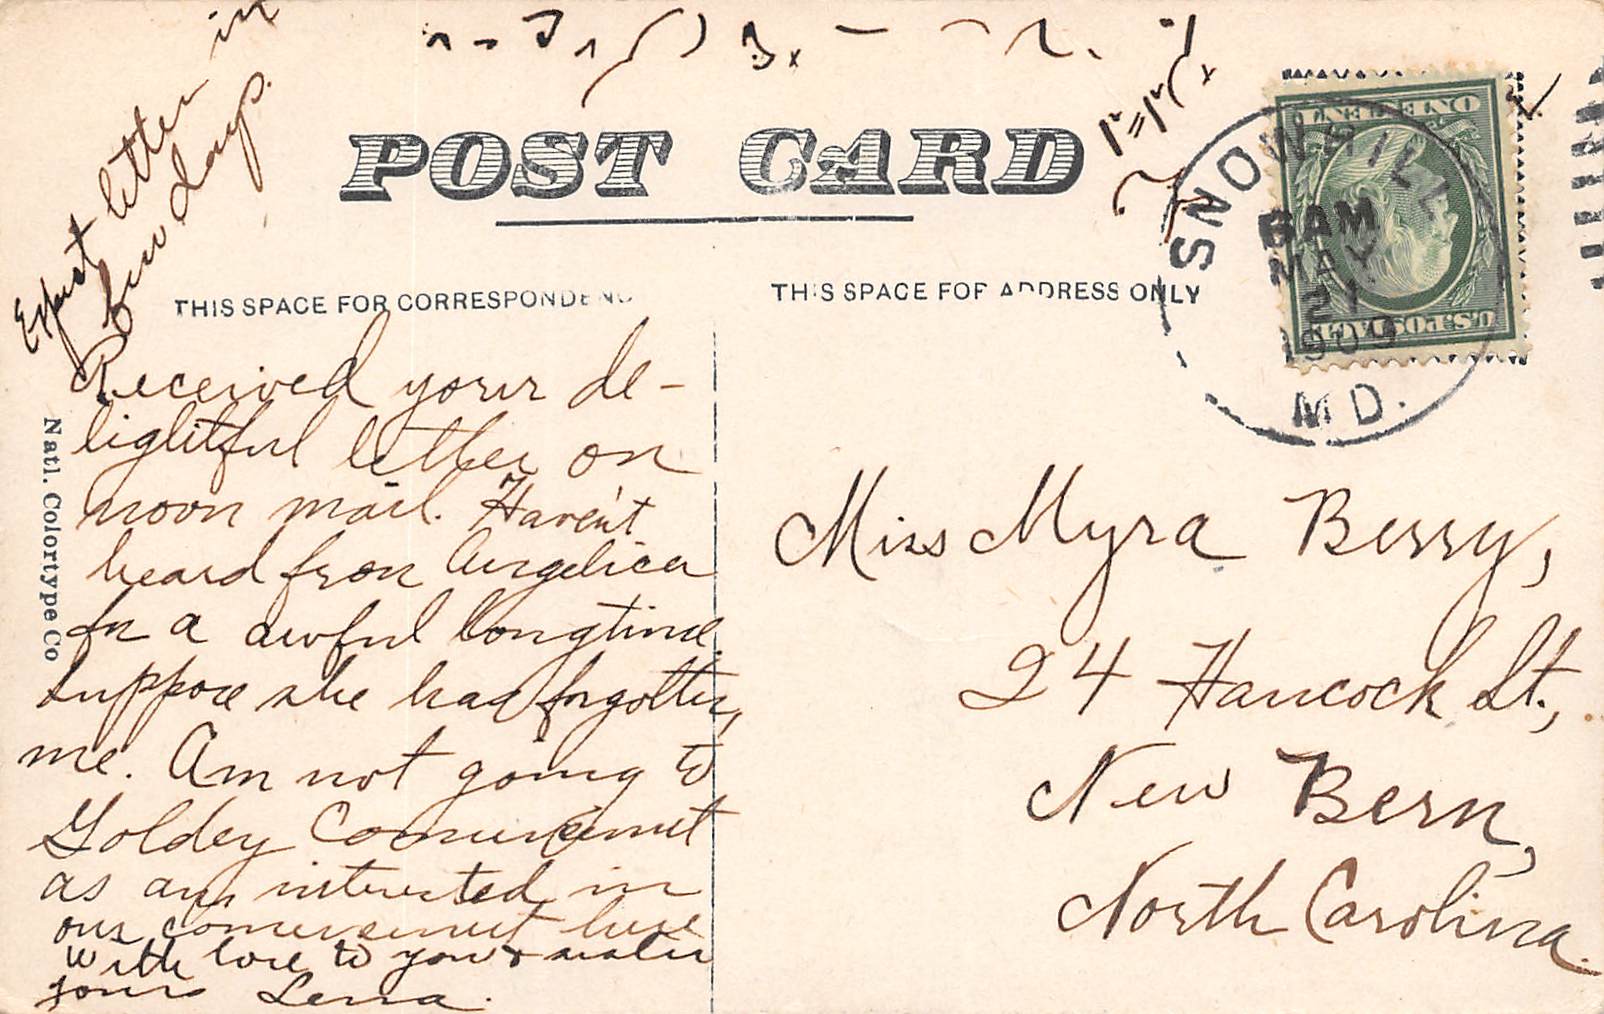 Expect letter in
few days.
POST CARD
THIS SPACE FOR CORRESPONDENC
THIS SPACE FOR ADDRESS ONLY
SNOW HILL
6 AM
MAY
21
1909
MD.
ONE CENT 1
U.S. POSTAGE
Received your de-
lightful letter on
noon mail. Haven't
heard from Angelica
for a awful longtime.
Suppose she has forgotten
me. Am not going to
Goldey Commencement
as am interested in
our commencement here
With love to you & sister
Yours Lena.
Natl. Colortype Co
Miss Myra Berry,
24 Hancock St.,
New Bern,
North Carolina.